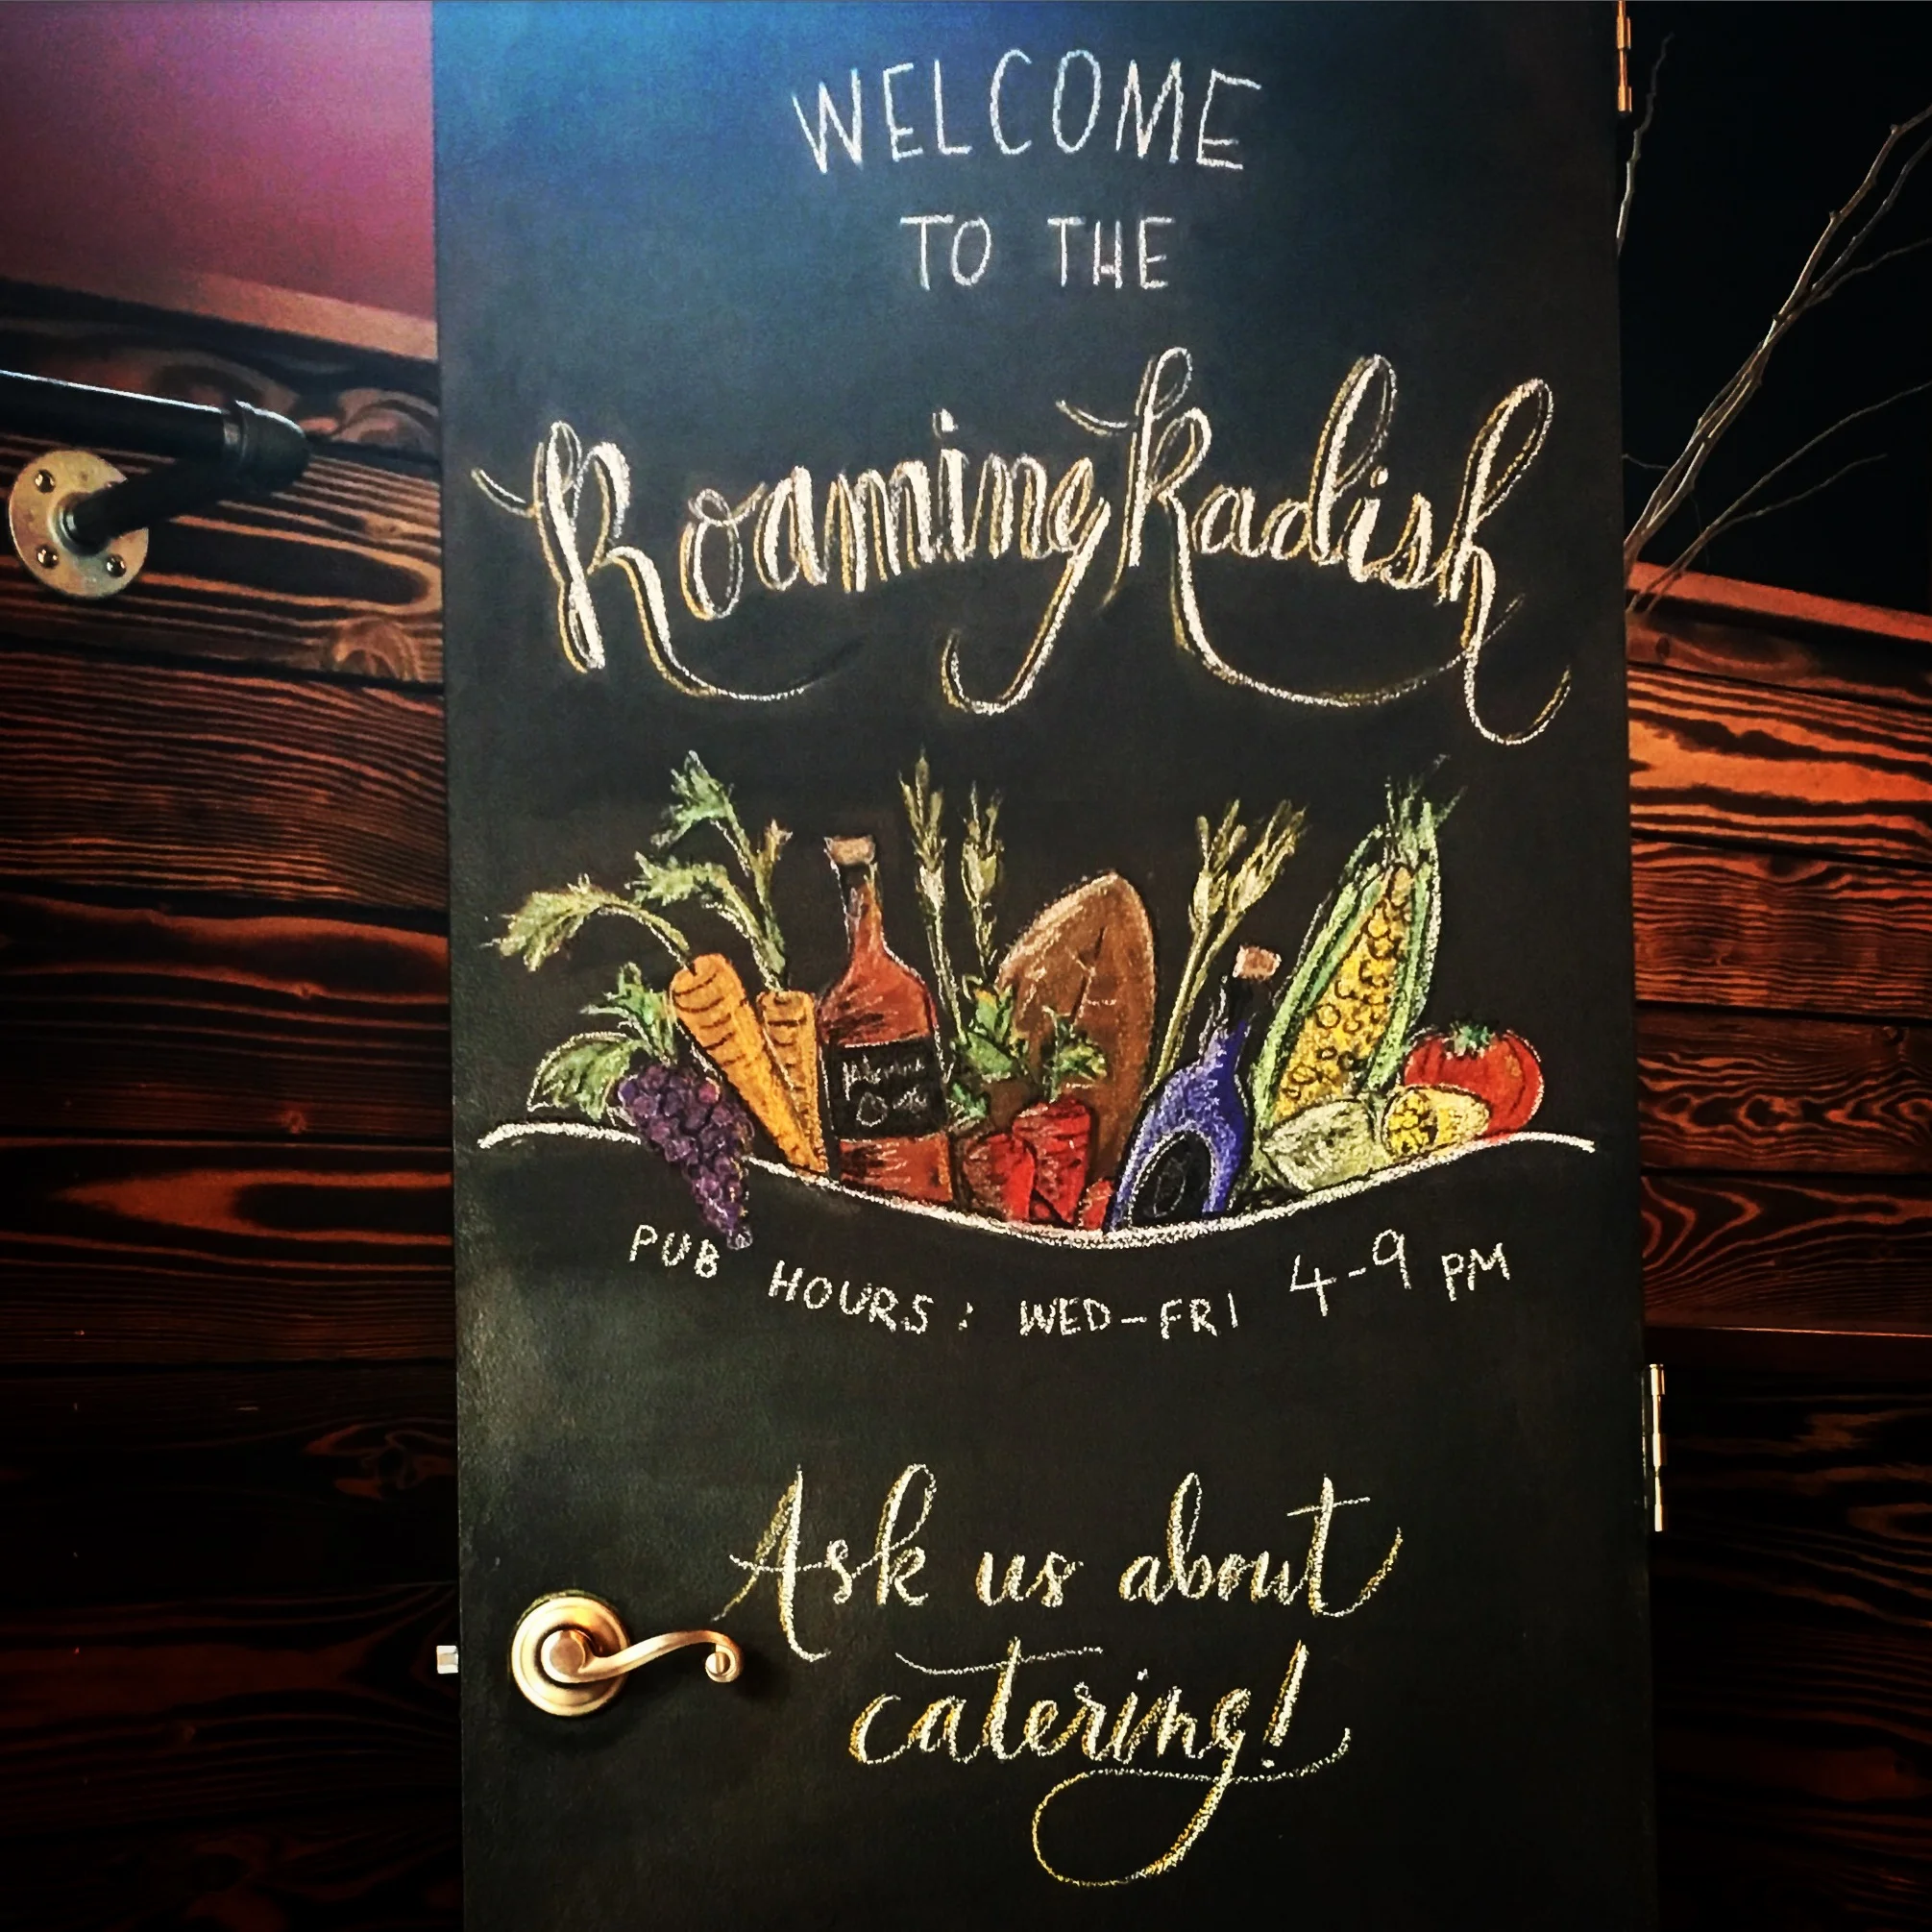 WELCOME
TO THE
Roaming Radish
PUB HOURS: WED-FRI 4-9 PM
Ask us about
catering!